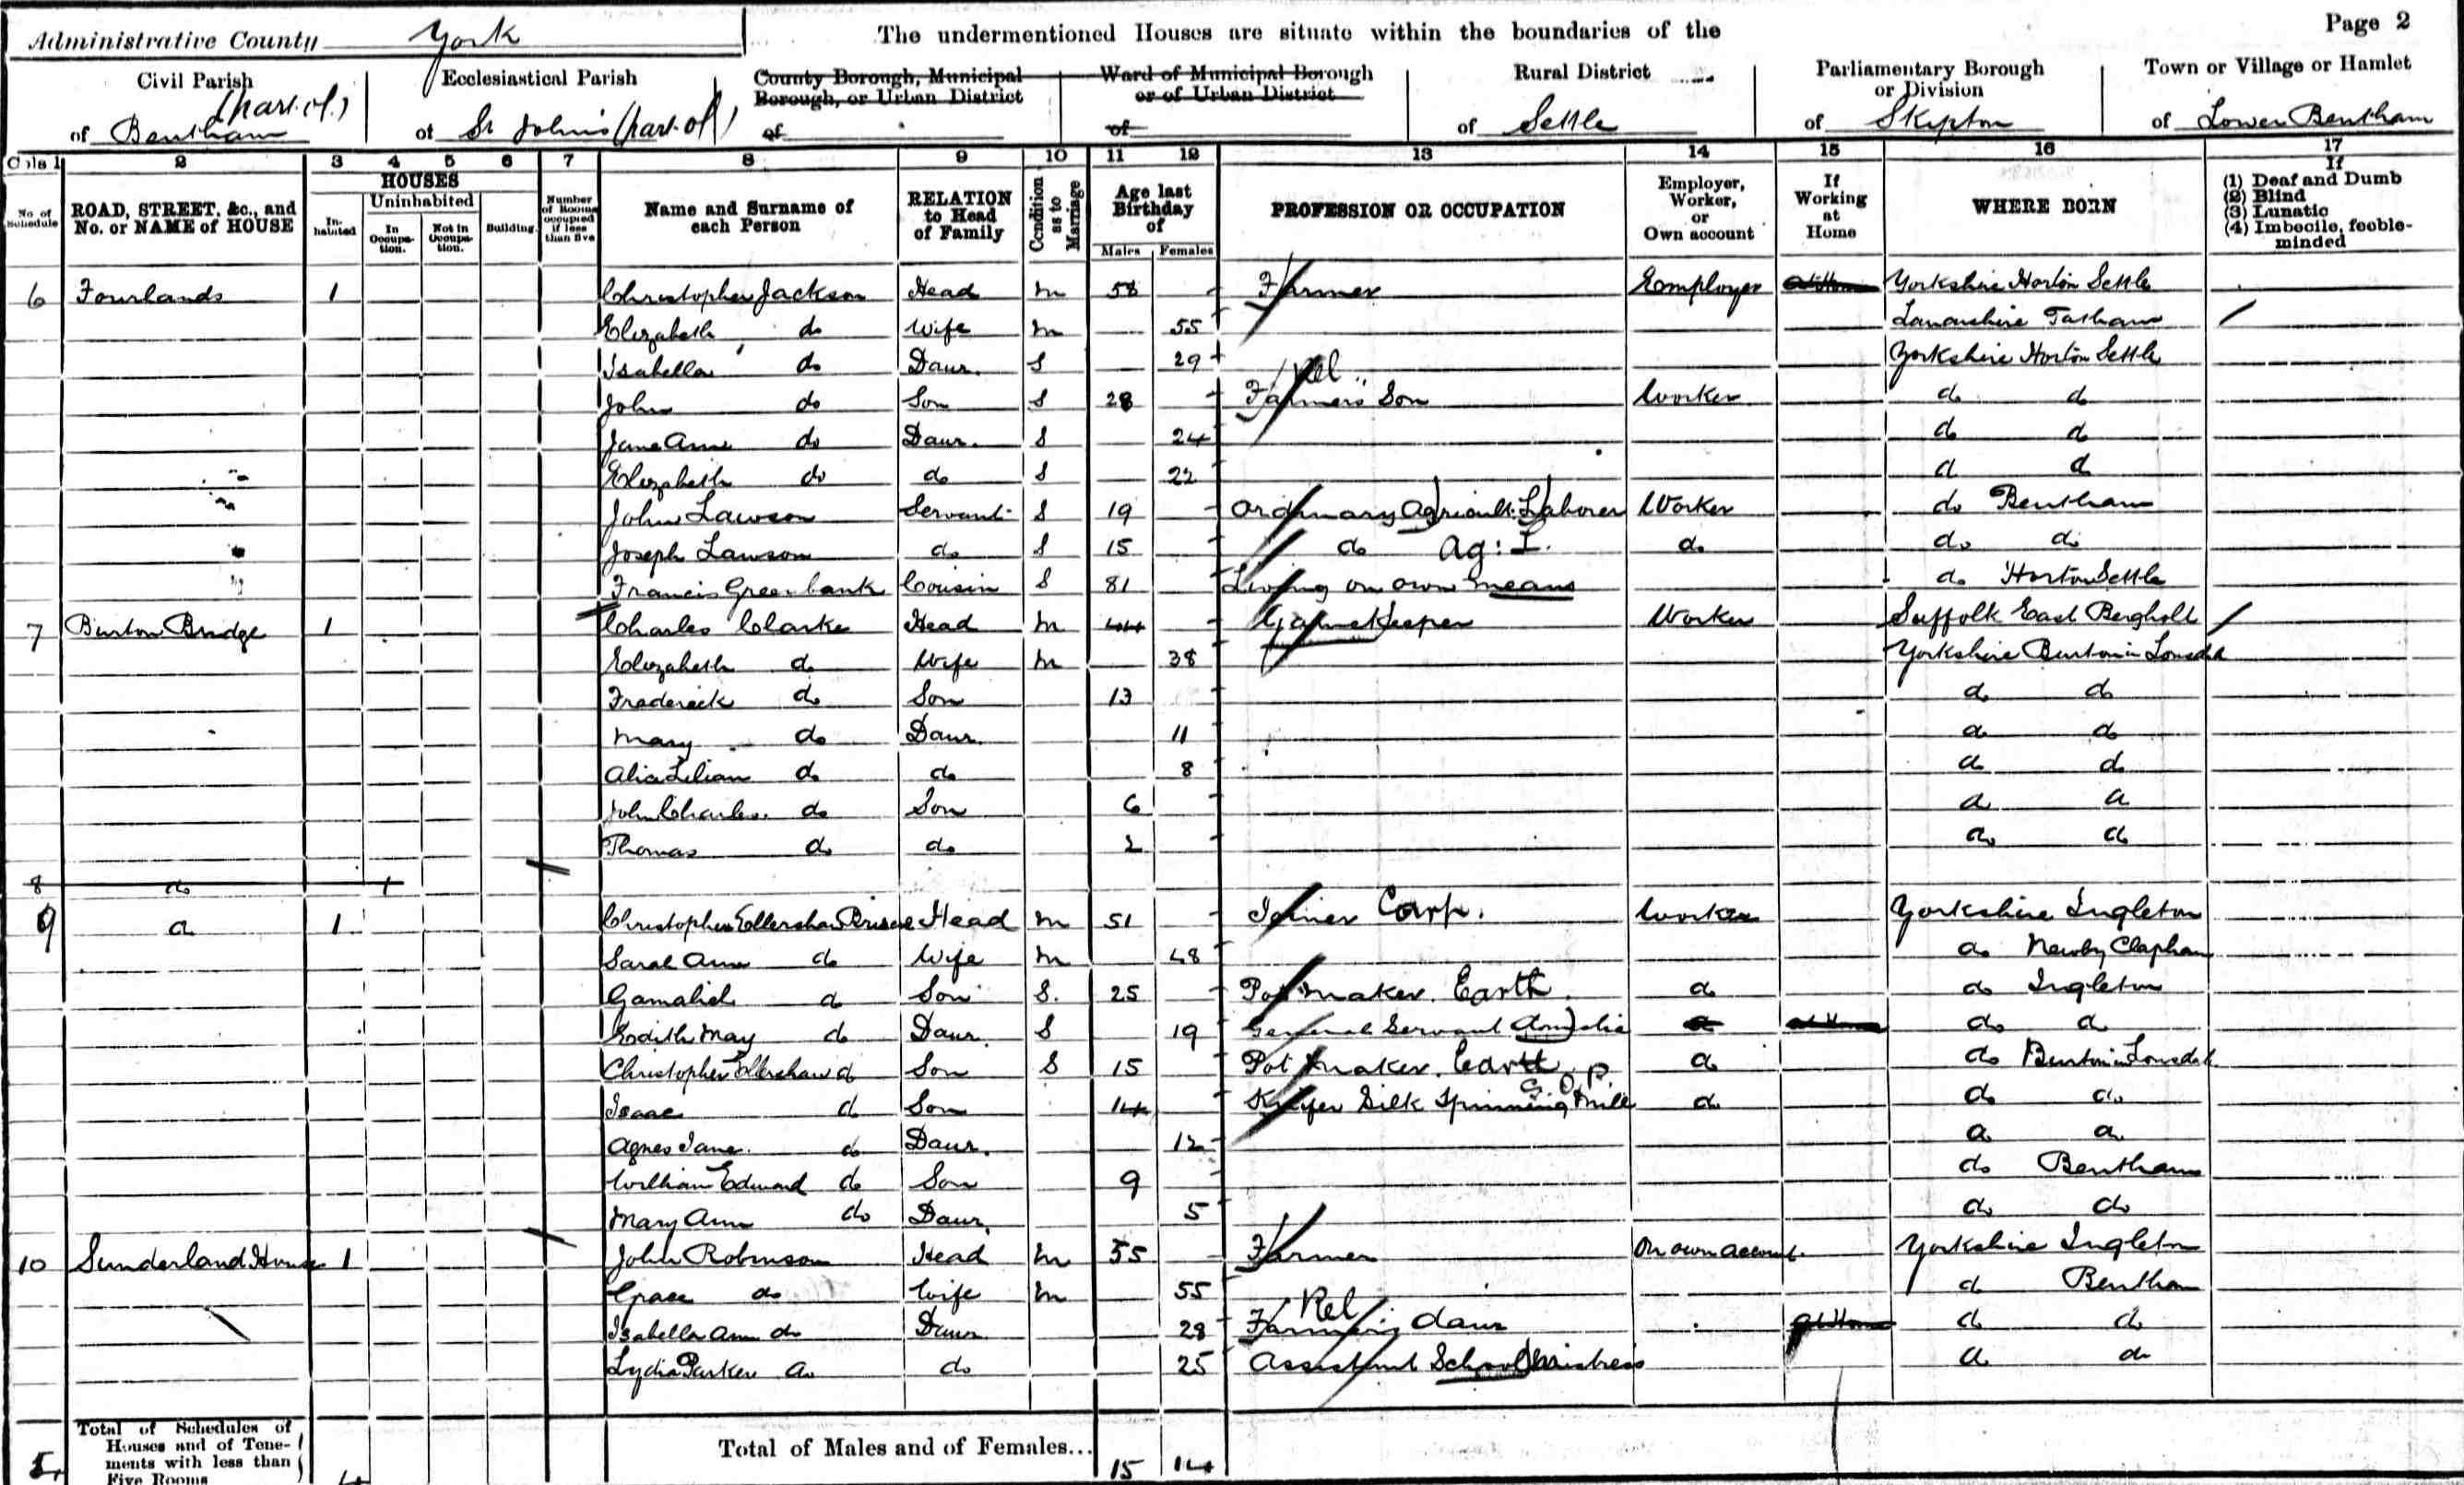 Page 2
Administrative County York The undermentioned Houses are situate within the boundaries of the
Civil Parish Ecclesiastical Parish County Borough, Municipal Borough, or Urban District Ward of Municipal Borough or of Urban District Rural District Parliamentary Borough or Division Town or Village or Hamlet
of Bentham (part of) of St Johns (part of) of of of Settle of Skipton of Lower Bentham
Cols 1 2 3 4 5 6 7 8 9 10 11 12 13 14 15 16 17
No. of Schedule ROAD, STREET, &c., and No. or NAME of HOUSE HOUSES Inhabited Uninhabited In Occupation. Not in Occupation. Building Number of Rooms occupied if less than five Name and Surname of each Person RELATION to Head of Family Condition as to Marriage Age last Birthday of Males Females PROFESSION OR OCCUPATION Employer, Worker, or Own account If Working at Home WHERE BORN If (1) Deaf and Dumb (2) Blind (3) Lunatic (4) Imbecile, feeble-minded
6 Fourlands 1 Christopher Jackson Head M 58 Farmer Employer At Home Yorkshire Horton Settle
Elizabeth do Wife M 55 Lancashire Tatham
Isabella do Daur. S 29 Yorkshire Horton Settle
John do Son S 28 Farmers Son Rel Worker do do
Jane Ann do Daur. S 24 do do
Elizabeth do do S 22 do do
John Lawson Servant S 19 Ordinary Agricult: Laborer Worker do Bentham
Joseph Lawson do S 15 do Ag: L. do do do
Francis Greenbank Cousin S 81 Living on own means do Horton Settle
7 Burton Bridge 1 Charles Clarke Head M 44 Gamekeeper Worker Suffolk East Bergholt
Elizabeth do Wife M 38 Yorkshire Burton in Lonsdale
Frederick do Son 13 do do
Mary do Daur. 11 do do
Alice Lilian do do 8 do do
John Charles do Son 6 do do
Thomas do do 2 do do
8 do 1
9 do 1 Christopher Ellershaw Briscoe Head M 51 Joiner Carp. Worker Yorkshire Ingleton
Sarah Ann do Wife M 48 do Newby Clapham
Gamaliel do Son S. 25 Pot maker. Earth. do do Ingleton
Edith May do Daur. S 19 General Servant Domestic do At Home do do
Christopher Ellershaw do Son S 15 Pot maker. Earth do do Burton in Lonsdale
Isaac do Son 14 Silk Spinning Mill S. O. P. do do do
Agnes Jane. do Daur. 12 do do
William Edward do Son 9 do Bentham
Mary Ann do Daur. 5 do do
10 Sunderland House 1 John Robinson Head M 55 Farmer On own account. Yorkshire Ingleton
Grace do Wife M 55 do Bentham
Isabella Ann do Daur 28 Farmers daur Rel At Home do do
Lydia Parker do do 25 Assistant School Mistress do do
5 Total of Schedules of Houses and of Tenements with less than Five Rooms 4 Total of Males and of Females... 15 14